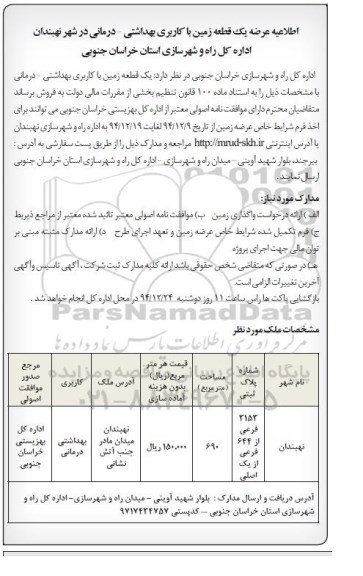 اطلاعیه عرضه یک قطعه زمین با کاربری بهداشتی - درمانی در شهر نهبندان
اداره کل راه و شهرسازی استان خراسان جنوبی
اداره کل راه و شهرسازی خراسان جنوبی در نظر دارد: یک قطعه زمین با کاربری بهداشتی - درمانی
با مشخصات ذیل را به استناد ماده ۱۰۰ قانون تنظیم بخشی از مقررات مالی دولت به فروش برساند
متقاضیان محترم دارای موافقت نامه اصولی معتبر از اداره کل بهزیستی خراسان جنوبی می توانند برای
اخذ فرم شرایط خاص عرضه زمین از تاریخ ۹۴/۱۲/۹ لغایت ۹۴/۱۲/۱۹ به اداره راه و شهرسازی نهبندان
یا آدرس اینترنتی http://mrud-skh.ir مراجعه و مدارک ذیل را از طریق پست سفارشی به آدرس :
بیرجند، بلوار شهید آوینی - میدان راه و شهرسازی - اداره کل راه و شهرسازی استان خراسان جنوبی
ارسال نمایند.
مدارک مورد نیاز:
الف ) ارائه درخواست واگذاری زمین ب) موافقت نامه اصولی معتبر تائید شده معتبر از مراجع ذیربط
ج) فرم تکمیل شده شرایط خاص عرضه زمین و تعهد اجرای طرح د) ارائه مدارک مثبته مبنی بر
توان مالی جهت اجرای پروژه
هـ) در صورتی که متقاضی شخص حقوقی باشد ارائه کلیه مدارک ثبت شرکت ، آگهی تاسیس و آگهی
آخرین تغییرات الزامی است.
بازگشایی پاکت ها راس ساعت ۱۱ روز دوشنبه ۹۴/۱۲/۲۴ در محل اداره کل انجام خواهد شد .
ParsNamadData
مشخصات ملک مورد نظر
نام شهر | شماره پلاک ثبتی | مساحت (متر مربع) | قیمت هر متر مربع(ریال) بدون هزینه آماده سازی | آدرس ملک | کاربری | مرجع صدور موافقت اصولی
نهبندان | ۳۱۵۳ فرعی از ۶۴۴ فرعی از یک اصلی | ۶۹۰ | ۱۵۰,۰۰۰ ریال | نهبندان میدان مادر جنب آتش نشانی | بهداشتی درمانی | اداره کل بهزیستی خراسان جنوبی
آدرس دریافت و ارسال مدارک : بلوار شهید آوینی - میدان راه و شهرسازی- اداره کل راه و
شهرسازی استان خراسان جنوبی – کدپستی ۹۷۱۷۴۳۴۷۵۷